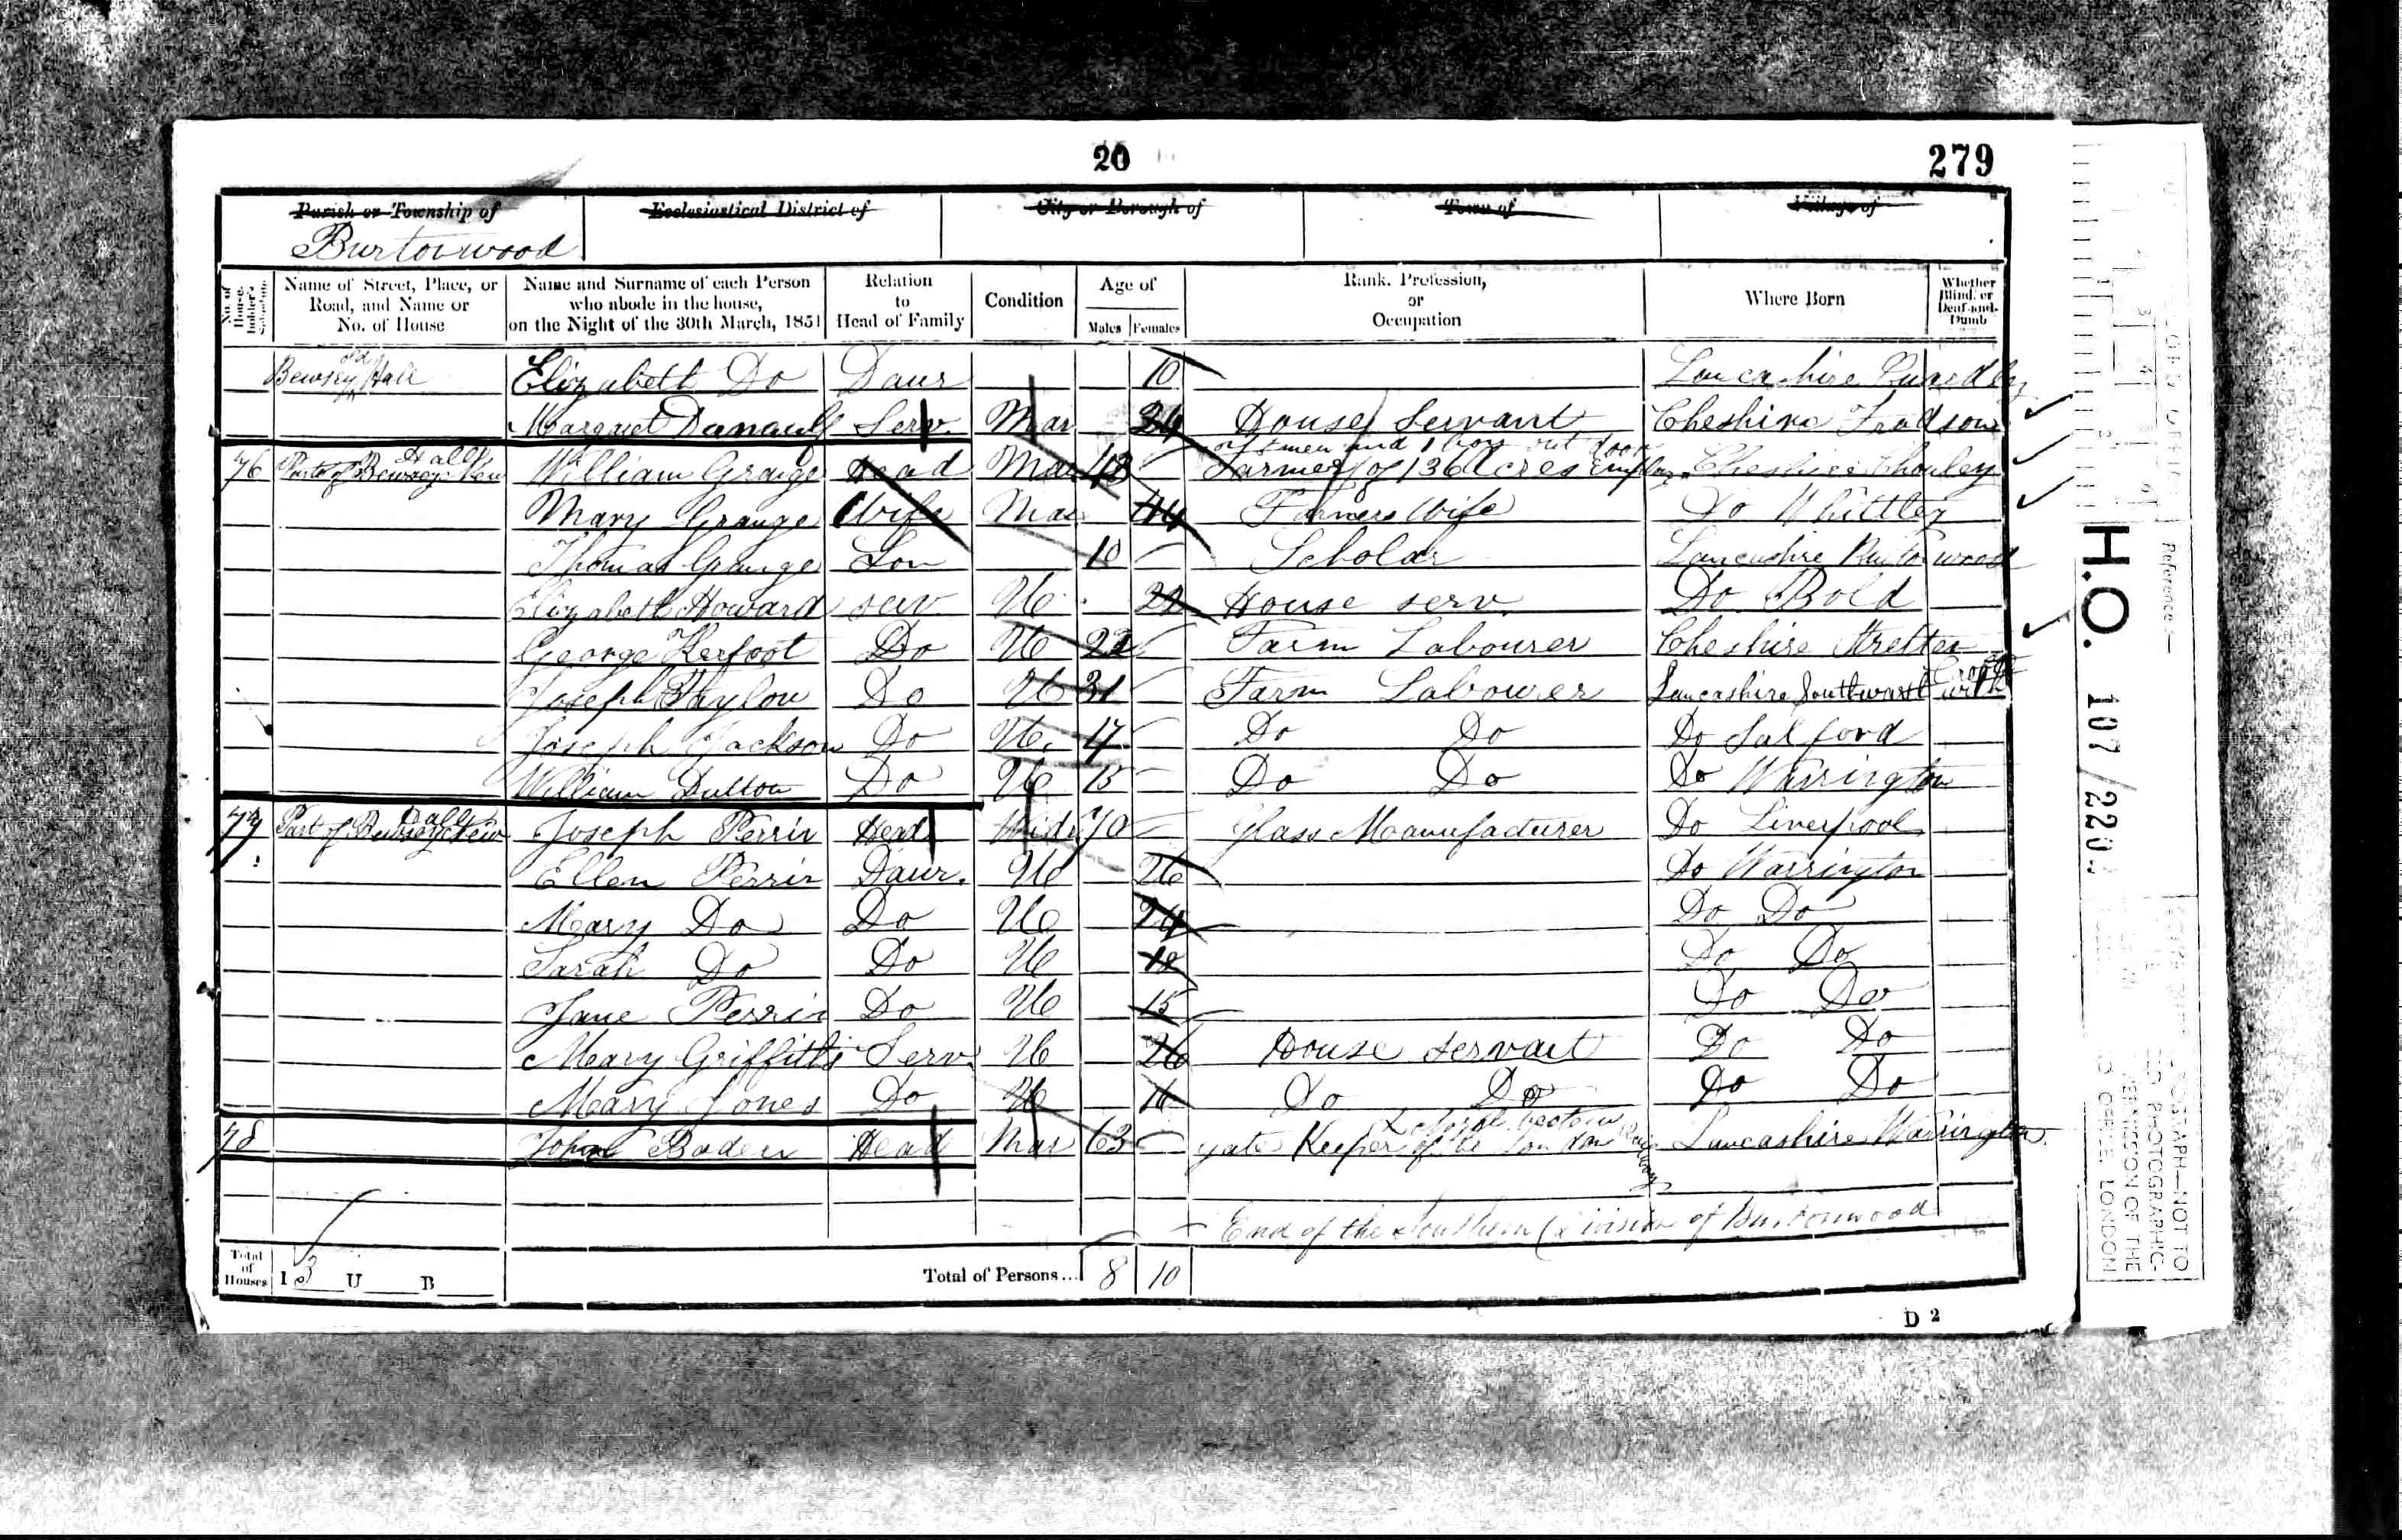 20
279
Parish or Township of Ecclesiastical District of City or Borough of Town of Village of
Burtonwood
No. of House-holder's Schedule Name of Street, Place, or Road, and Name or No. of House Name and Surname of each Person who abode in the house, on the Night of the 30th March, 1851 Relation to Head of Family Condition Age of Males Females Rank, Profession, or Occupation Where Born Whether Blind, or Deaf-and-Dumb
Bewsey old Hall Elizabeth Do Daur 10 Lancashire
Margaret Serv Mar 24 House Servant Cheshire Frodsom
of men and 1 boy out door
76 Part of Bewsey New Hall William Grange Head Mar 48 Farmer of 136 Acres Employ Cheshire
Mary Grange Wife Mar 44 Farmers Wife Do Whittley
Thomas Grange Son 10 Scholar Lancashire Burtonwood
Elizabeth Howard serv U House serv. Do Bold
George Kerfoot Do U 22 Farm Labourer Cheshire Stretton
Joseph Taylor Do U 31 Farm Labourer Lancashire Southwark with Croft
Joseph Jackson Do U. 17 Do Do Do Salford
William Dutton Do U 15 Do Do Do Warrington
77 Part of Bewsey New Hall Joseph Perrin Head Widr 70 Glass Manufacturer Do Liverpool
Ellen Perrin Daur. U 26 Do Warrington
Mary Do Do U 24 Do Do
Sarah Do Do U Do Do
Jane Perrin Do U 15 Do Do
Mary Griffiths Serv U 26 House servant Do Do
Mary Jones Do U 16 Do Do Do Do
78 John Baden Head Mar 63 gate Keeper of the London & North western Railway Lancashire Warrington
End of the Southern Division of Burtonwood
Total of Houses I 3 U B Total of Persons... 8 10
D 2
Reference:—
H.O. 107/220